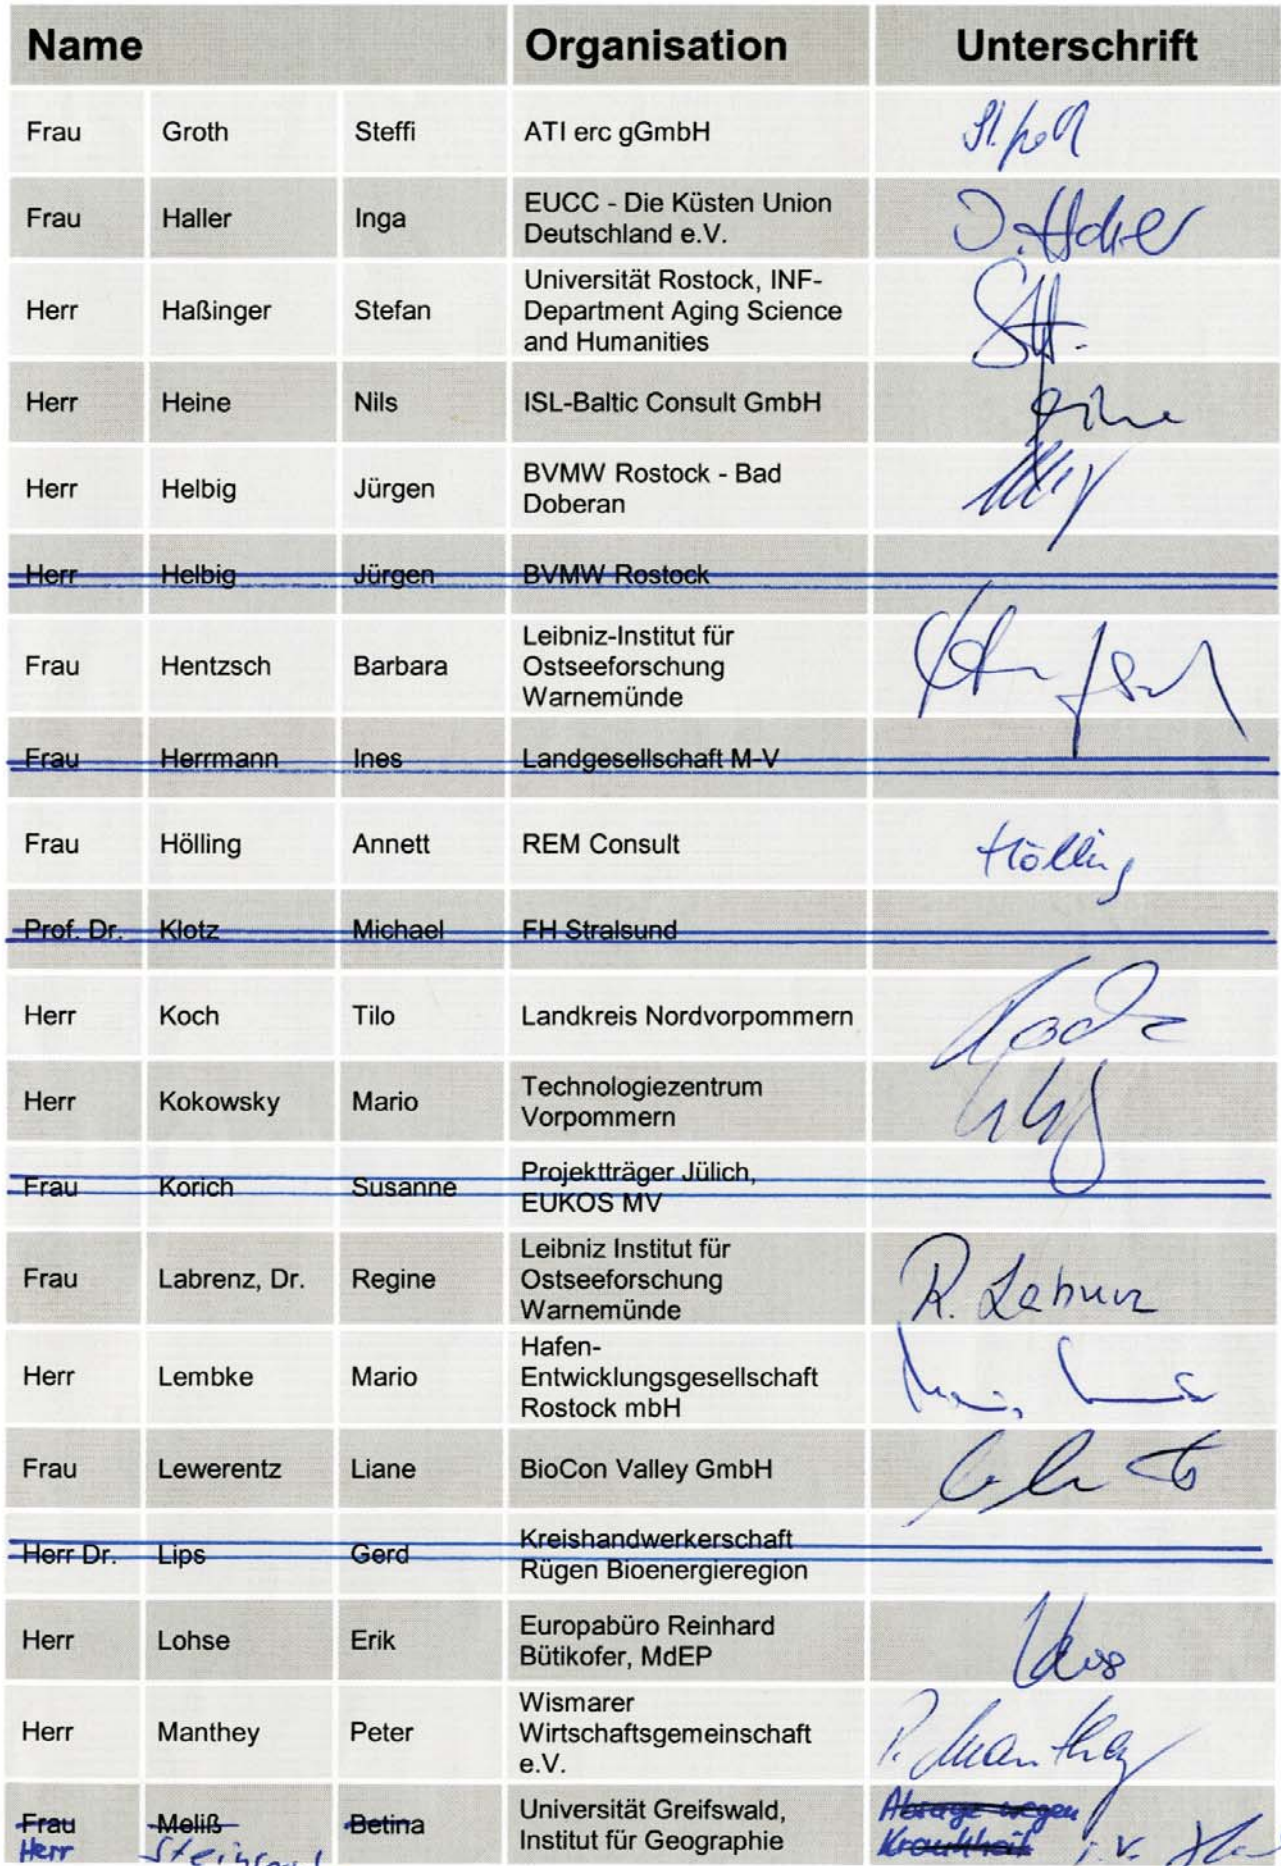 Name Organisation Unterschrift
Frau Groth Steffi ATI erc gGmbH
Frau Haller Inga EUCC - Die Küsten Union
Deutschland e.V.
Herr Haßinger Stefan Universität Rostock, INF-
Department Aging Science
and Humanities
Herr Heine Nils ISL-Baltic Consult GmbH
Herr Helbig Jürgen BVMW Rostock - Bad
Doberan
Herr Helbig Jürgen BVMW Rostock
Frau Hentzsch Barbara Leibniz-Institut für
Ostseeforschung
Warnemünde
Frau Herrmann Ines Landgesellschaft M-V
Frau Hölling Annett REM Consult Hölling
Prof. Dr. Klotz Michael FH Stralsund
Herr Koch Tilo Landkreis Nordvorpommern
Herr Kokowsky Mario Technologiezentrum
Vorpommern
Frau Korich Susanne Projektträger Jülich,
EUKOS MV
Frau Labrenz, Dr. Regine Leibniz Institut für
Ostseeforschung
Warnemünde R. Labrenz
Herr Lembke Mario Hafen-
Entwicklungsgesellschaft
Rostock mbH
Frau Lewerentz Liane BioCon Valley GmbH
Herr Dr. Lips Gerd Kreishandwerkerschaft
Rügen Bioenergieregion
Herr Lohse Erik Europabüro Reinhard
Bütikofer, MdEP
Herr Manthey Peter Wismarer
Wirtschaftsgemeinschaft
e.V. P. Manthey
Frau Meliß Betina Universität Greifswald,
Institut für Geographie Absage wegen
Krankheit i.V.
Herr